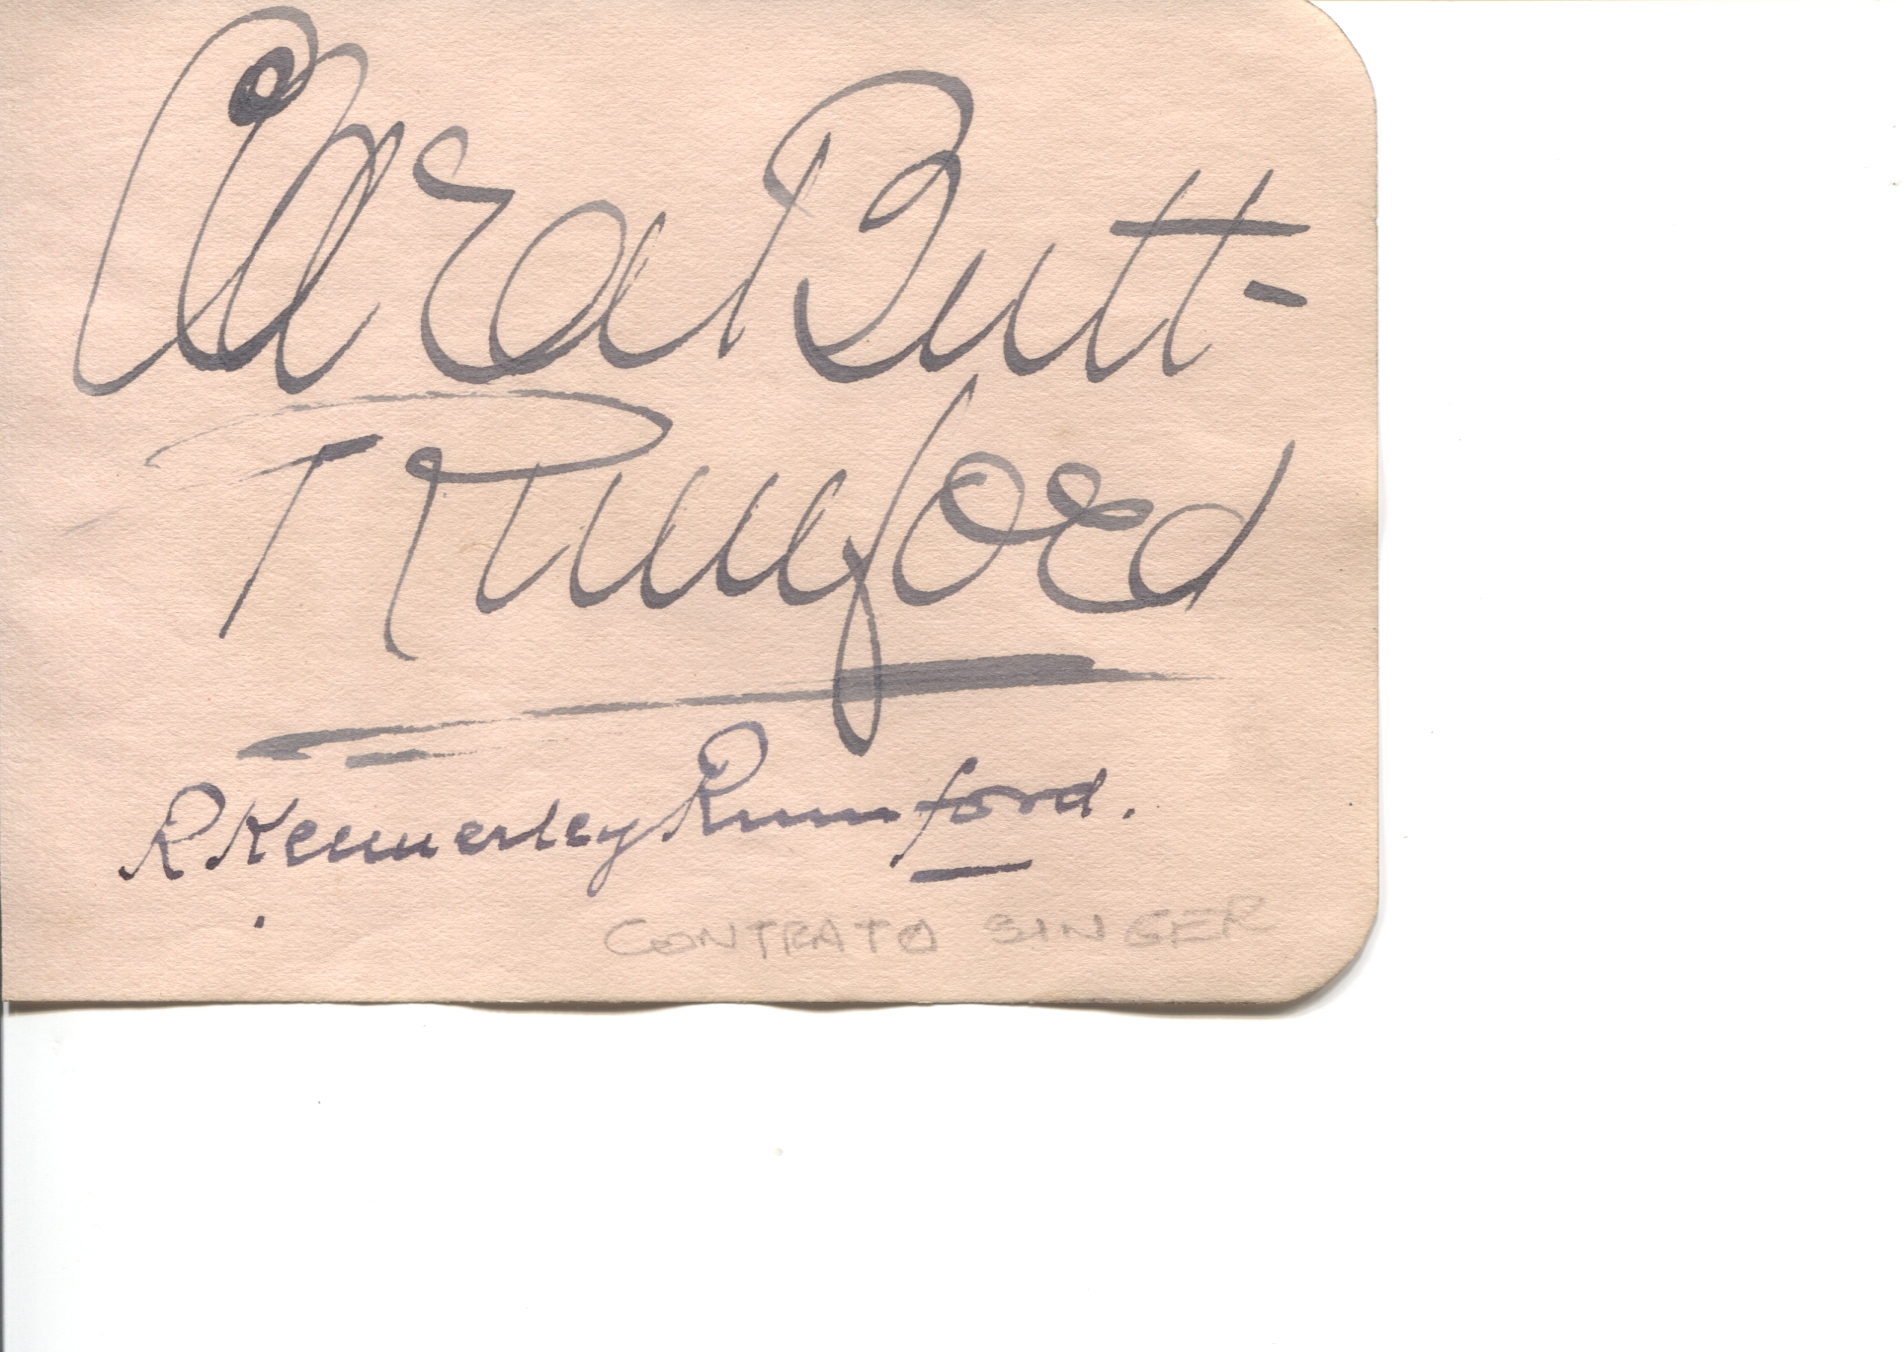 Clara Butt-
Rumford
R Kennerley Rumford.
CONTRATO SINGER